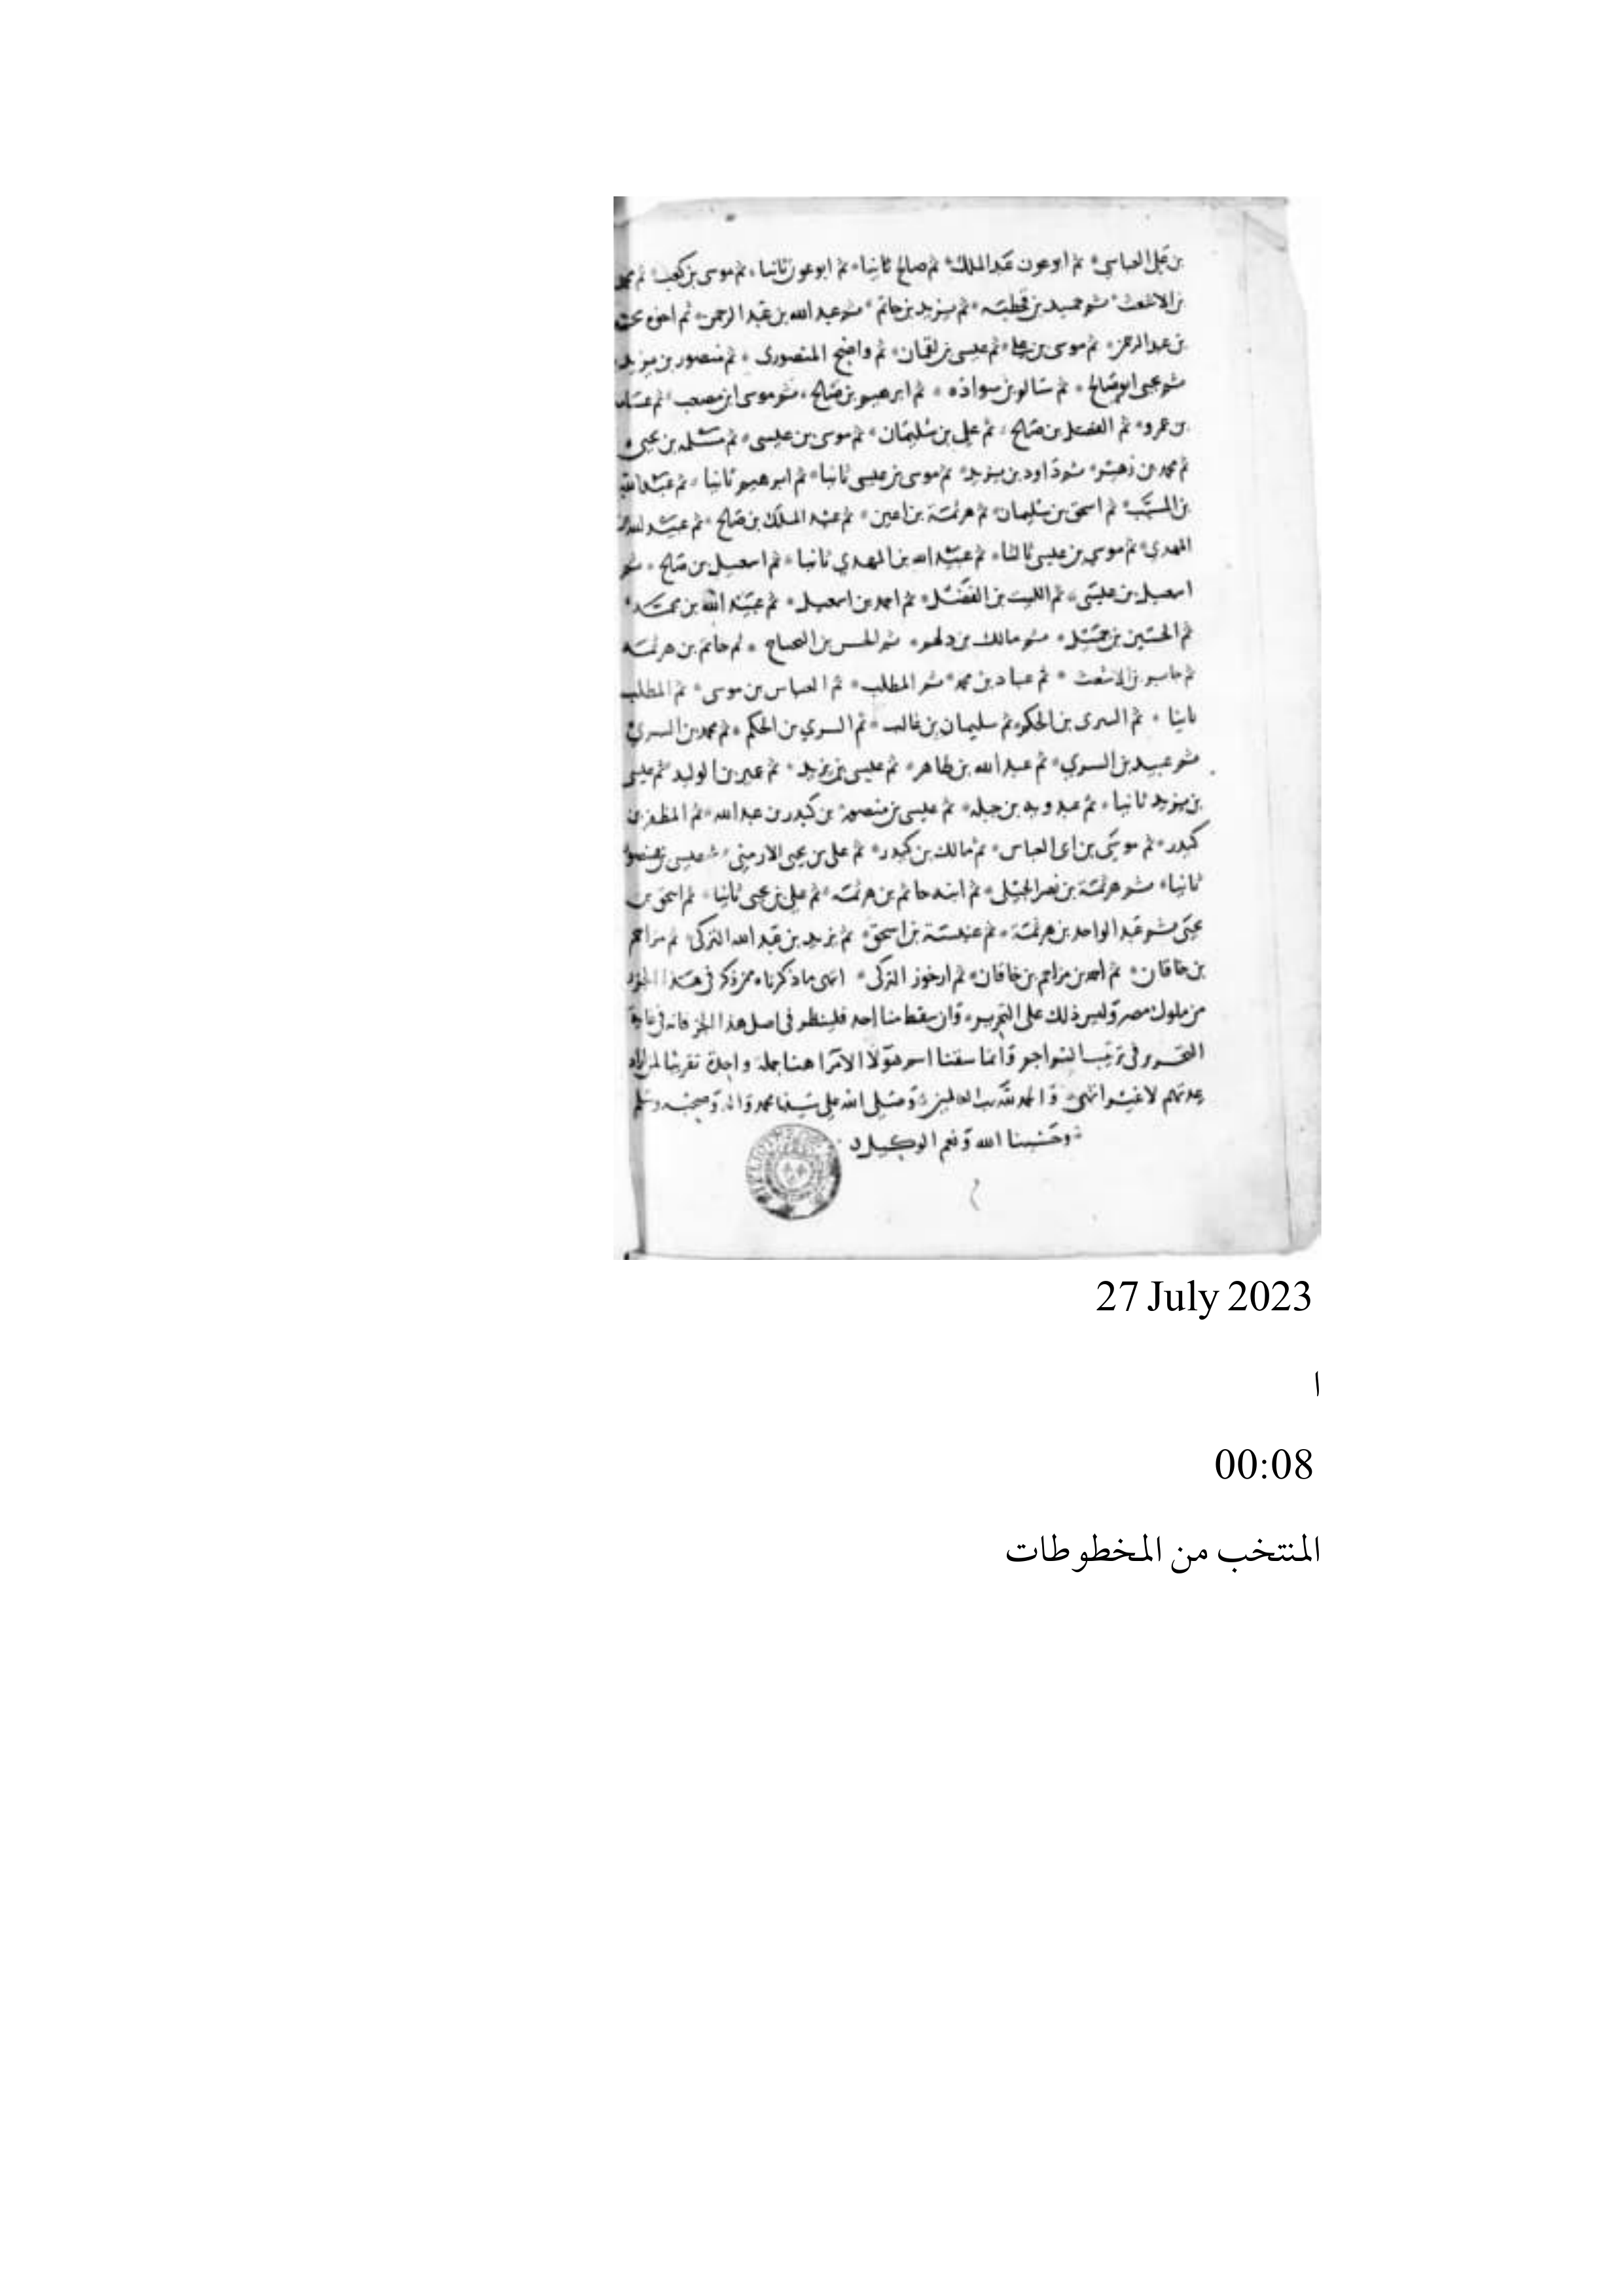 بن علي العباسي * ثم ابو عون عبد الملك * ثم صالح ثانيا * ثم ابو عون ثانيا * ثم موسى بن كعب * ثم محمد
بن الاشعث * ثم حميد بن قحطبة * ثم يزيد بن حاتم * ثم عبد الله بن عبد الرحمن * ثم اخوه محمد
بن عبد الرحمن * ثم موسى بن علي * ثم عيسى بن لقمان * ثم واضح المنصوري * ثم منصور بن يزيد
ثم يحيى ابو صالح * ثم سالم بن سواده * ثم ابرهيم بن صالح * ثم موسى ابن مصعب * ثم عسامه
بن عمرو * ثم الفضل بن صالح * ثم علي بن سليمان * ثم موسى بن عيسى * ثم مسلمه بن يحيى
ثم محمد بن زهير * ثم داود بن يزيد * ثم موسى بن عيسى ثانيا * ثم ابرهيم ثانيا * ثم عبد الله
بن المسيب * ثم اسحق بن سليمان * ثم هرثمة بن اعين * ثم عبد الملك بن صالح * ثم عبيد الله بن
المهدي * ثم موسى بن عيسى ثالثا * ثم عبيد الله بن المهدي ثانيا * ثم اسمعيل بن صالح * ثم
اسمعيل بن عيسى * ثم الليث بن الفضل * ثم احمد بن اسمعيل * ثم عبيد الله بن محمد *
ثم الحسين بن جميل * ثم مالك بن دلهم * ثم الحسن بن التحتاح * ثم حاتم بن هرثمة
ثم جابر بن الاشعث * ثم عباد بن محمد * ثم المطلب * ثم العباس بن موسى * ثم المطلب
ثانيا * ثم السرى بن الحكم * ثم سليمان بن غالب * ثم السري بن الحكم * ثم محمد بن السري
ثم عبيد بن السري * ثم عبد الله بن طاهر * ثم عيسى بن يزيد * ثم عمير بن الوليد * ثم عيسى
بن يزيد ثانيا * ثم عبدويه بن جبله * ثم عيسى بن منصور * بن كيدر بن عبد الله * ثم المظفر بن
كيدر * ثم موسى بن ابى العباس * ثم مالك بن كيدر * ثم علي بن يحيى الارمني * ثم عيسى بن منصور
ثانيا * ثم هرثمة بن نصر الجبلي * ثم ابنه حاتم بن هرثمه * ثم علي بن يحيى ثانيا * ثم اسحق بن
يحيى ثم عبد الواحد بن هرثمة * ثم عنبسة بن اسحق * ثم يزيد بن عبد الله التركي * ثم مزاحم
بن خاقان * ثم احمد بن مزاحم بن خاقان * ثم ارخوز التركى * انتهى ما ذكرناه ممن ذكر في هذا الجزء
من ملوك مصر وليس ذلك على التحرير * وان سقط منا احد فلينظر في اصل هذا الجزء فانه في غاية
التحرير في ترتيب التراجم وانما سقنا اسم هؤلا الامرا هنا جملة واحدة تقريبا لمن اراد
عدتهم لا غير انتهى * والحمد لله رب العالمين * وصلى الله على سيدنا محمد واله وصحبه وسلم
* وحسبنا الله ونعم الوكيل
27 July 2023
ا
00:08
المنتخب من المخطوطات